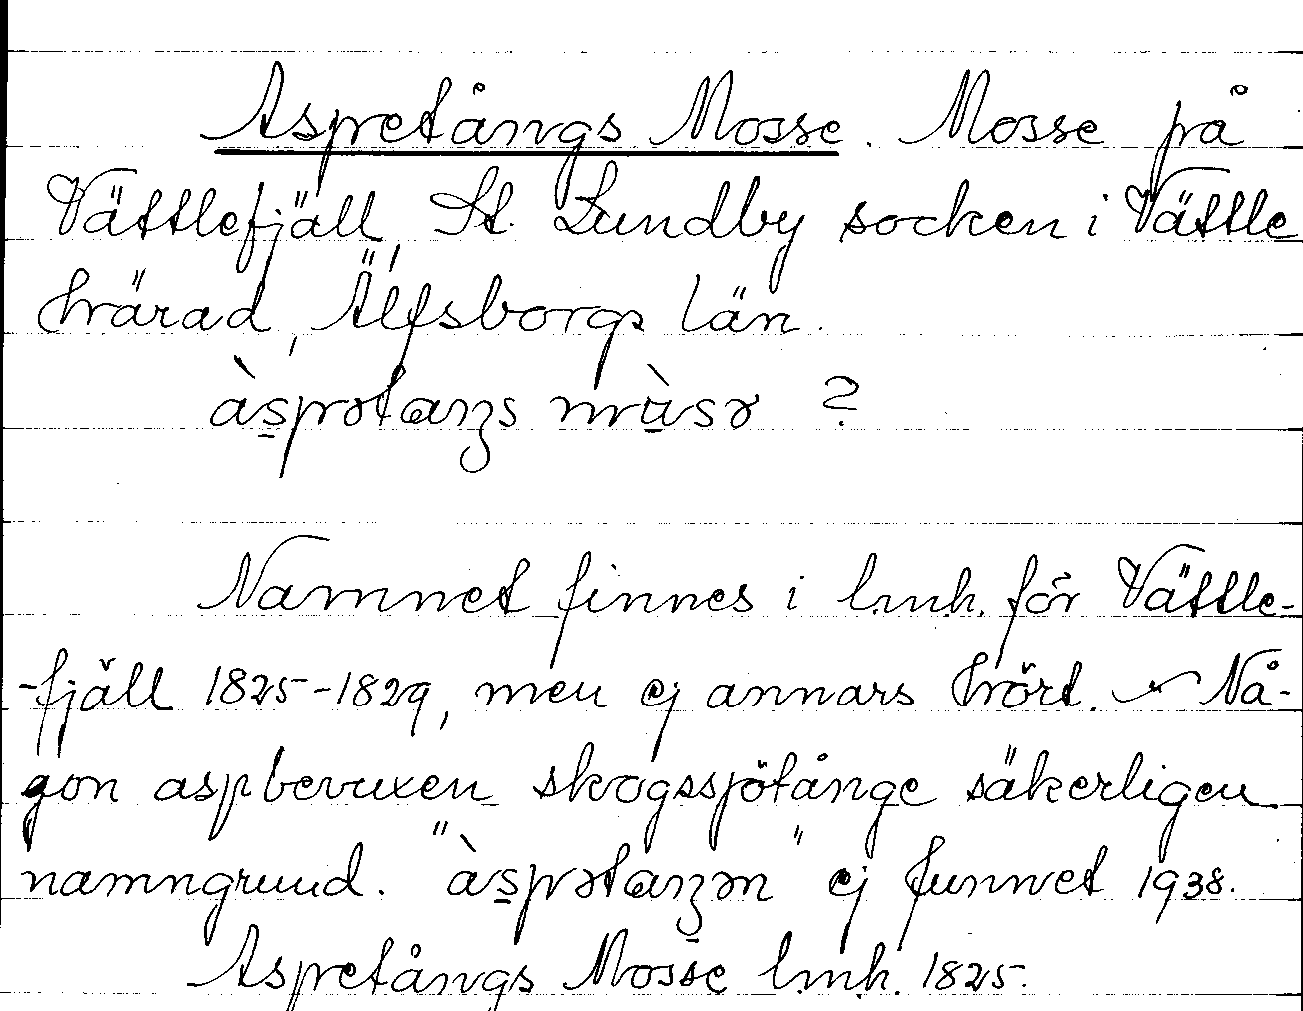 Aspretångs Mosse. Mosse på
Vättlefjäll, St. Lundby socken i Vättle
härad, Älfsborgs län.
àsprətaŋs mùsə ?
Namnet finnes i lmh. för Vättle-
-fjäll 1825-1829, men ej annars hört. ~ Nå-
gon aspbevuxen skogssjötånge säkerligen
namngrund. "àsprətaŋən" ej funnet 1938.
Aspretångs Mosse lmh. 1825.